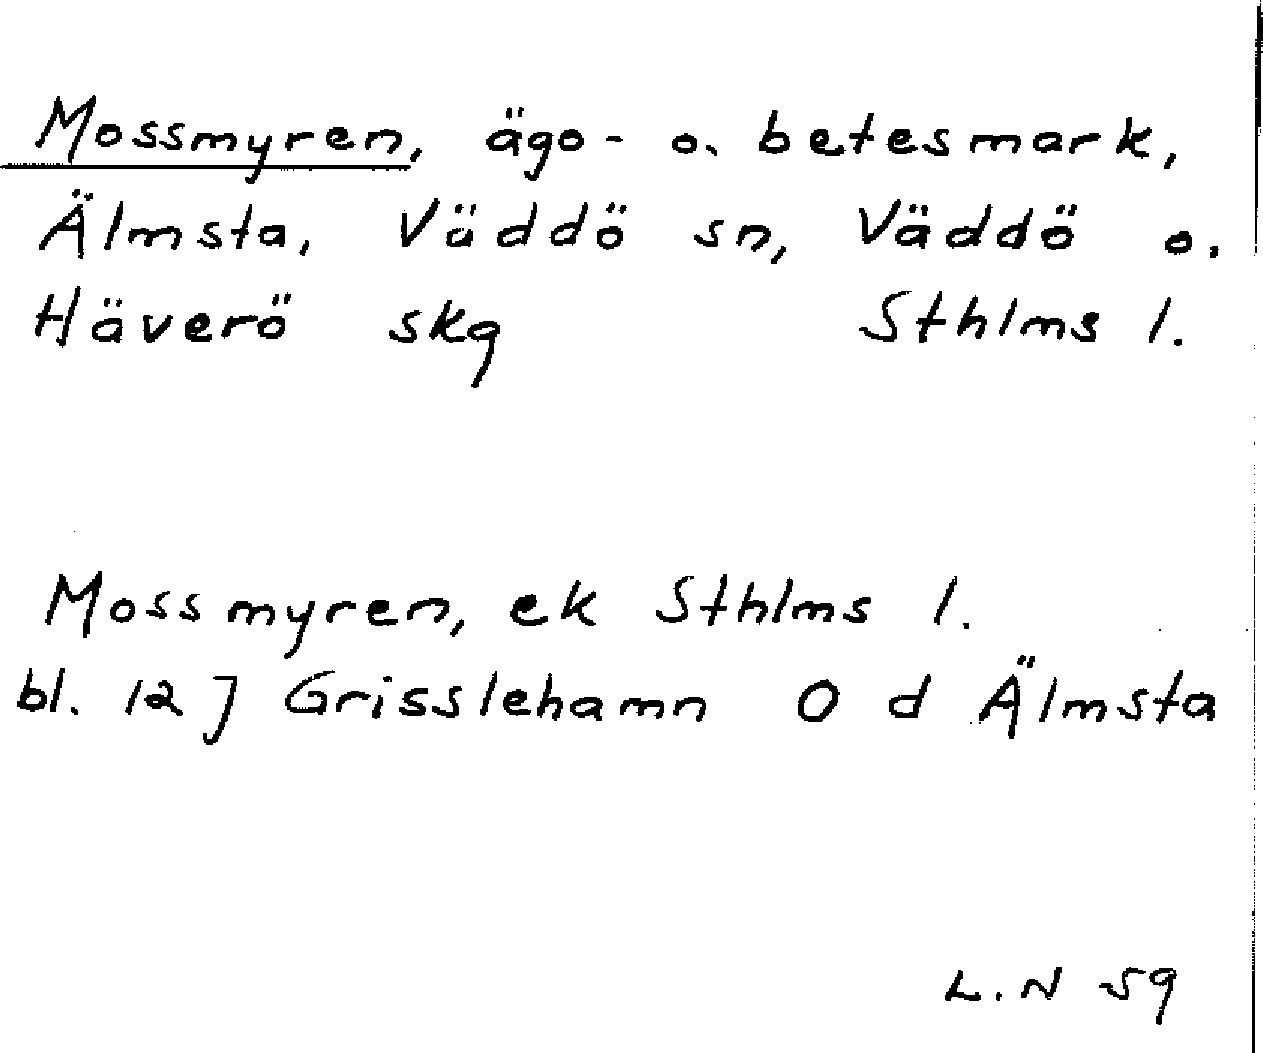 Mossmyren, ägo- o. betesmark,
Älmsta, Väddö sn, Väddö o.
Häverö skg Sthlms l.
Mossmyren, ek Sthlms l.
bl. 12 J Grisslehamn O d Älmsta
L.N 59